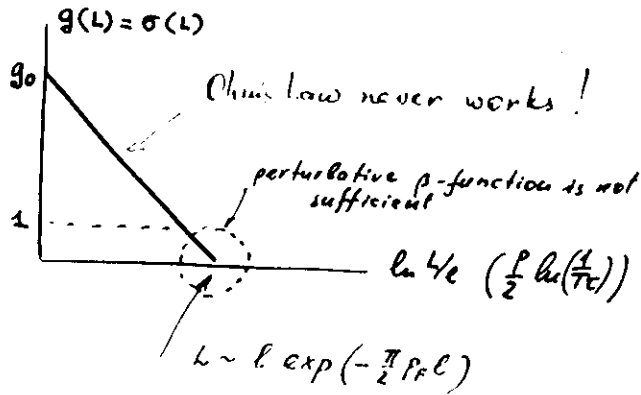 g(L) = σ(L)
g₀
Ohm's Law never works!
perturbative β-function is not
sufficient
1
ln L/ℓ (p/2 ln(1/Tτ))
L ~ ℓ exp(-π/2 p_F ℓ)